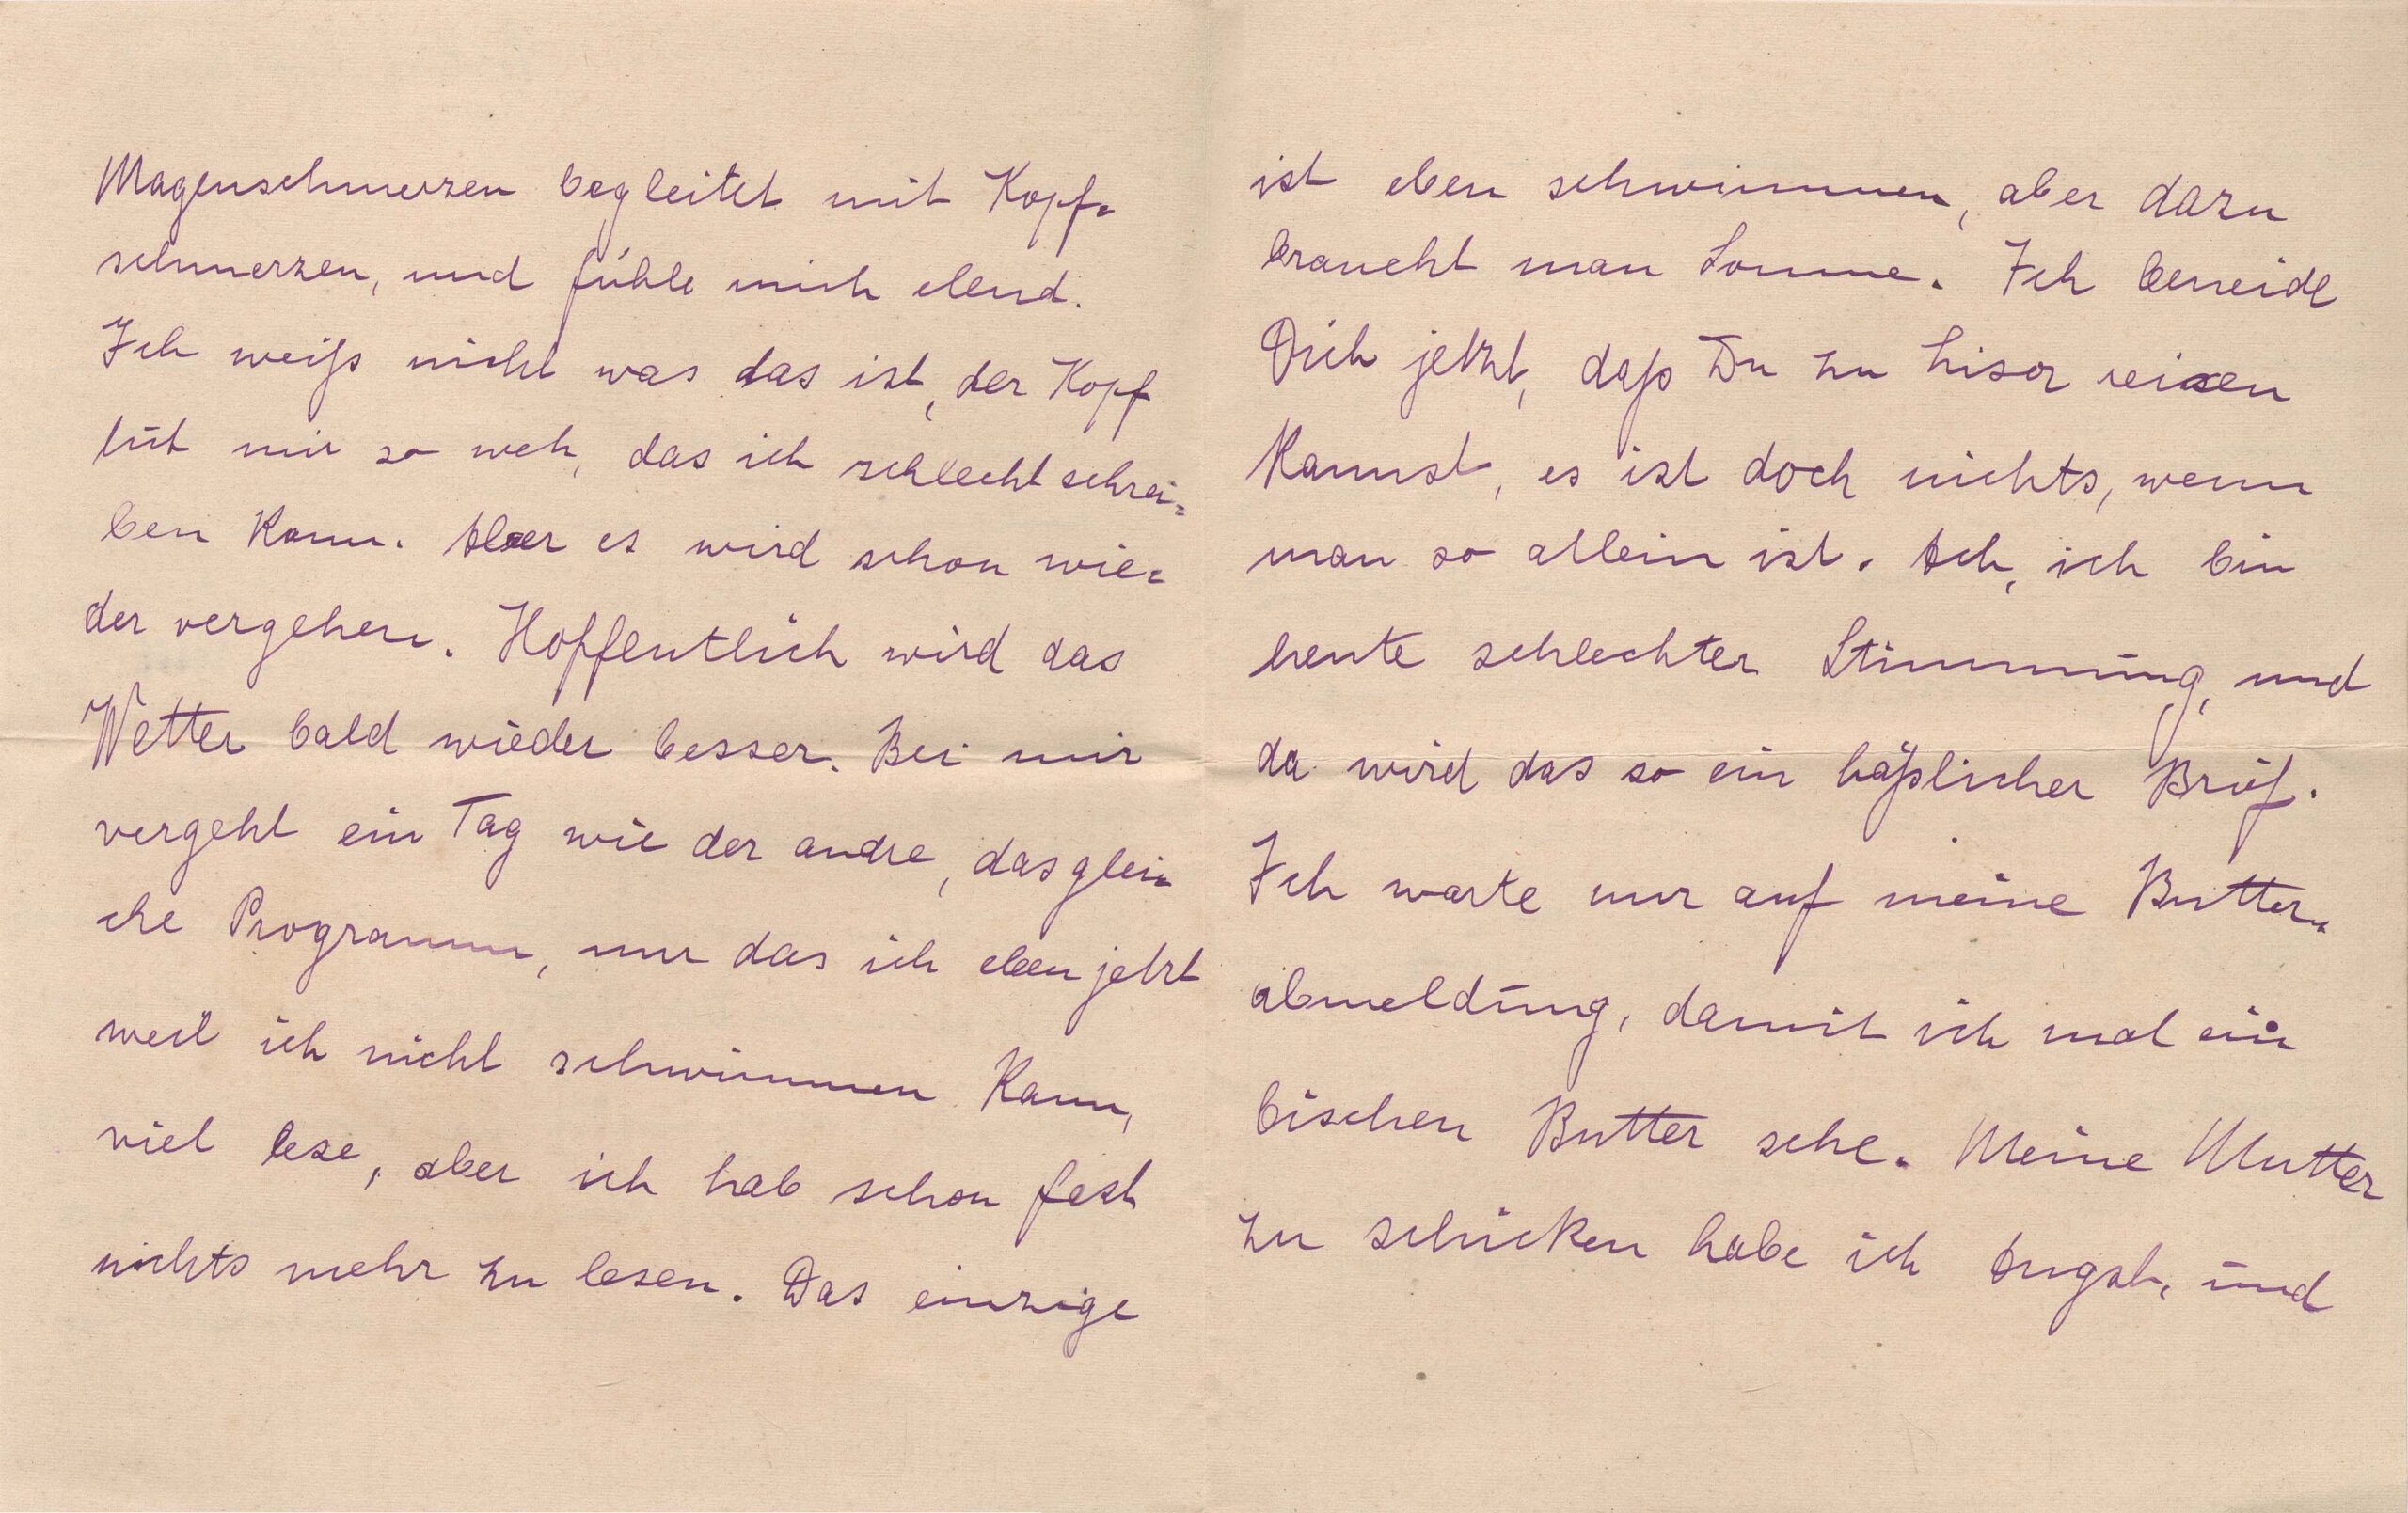 Magenschmerzen begleitet mit Kopf=
schmerzen, und fühle mich elend.
Ich weiß nicht was das ist, der Kopf
tut mir so weh, das ich schlecht schrei=
ben kann. Aber es wird schon wie=
der vergehen. Hoffentlich wird das
Wetter bald wieder besser. Bei mir
vergeht ein Tag wie der andre, das glei=
che Programm, nur das ich eben jetzt
weil ich nicht schwimmen kann,
viel lese, aber ich hab schon fast
nichts mehr zu lesen. Das einzige
ist eben schwimmen, aber dazu
braucht man Sonne. Ich beneide
Dich jetzt, daß Du zu reisen
kannst, es ist doch nichts, wenn
man so allein ist. Ach, ich bin
heute schlechter Stimmung, und
da wird das so ein häßlicher Brief.
Ich warte nur auf meine Butter=
abmeldung, damit ich mal ein
bischen Butter sehe. Meine Mutter
zu schicken habe ich Angst, und